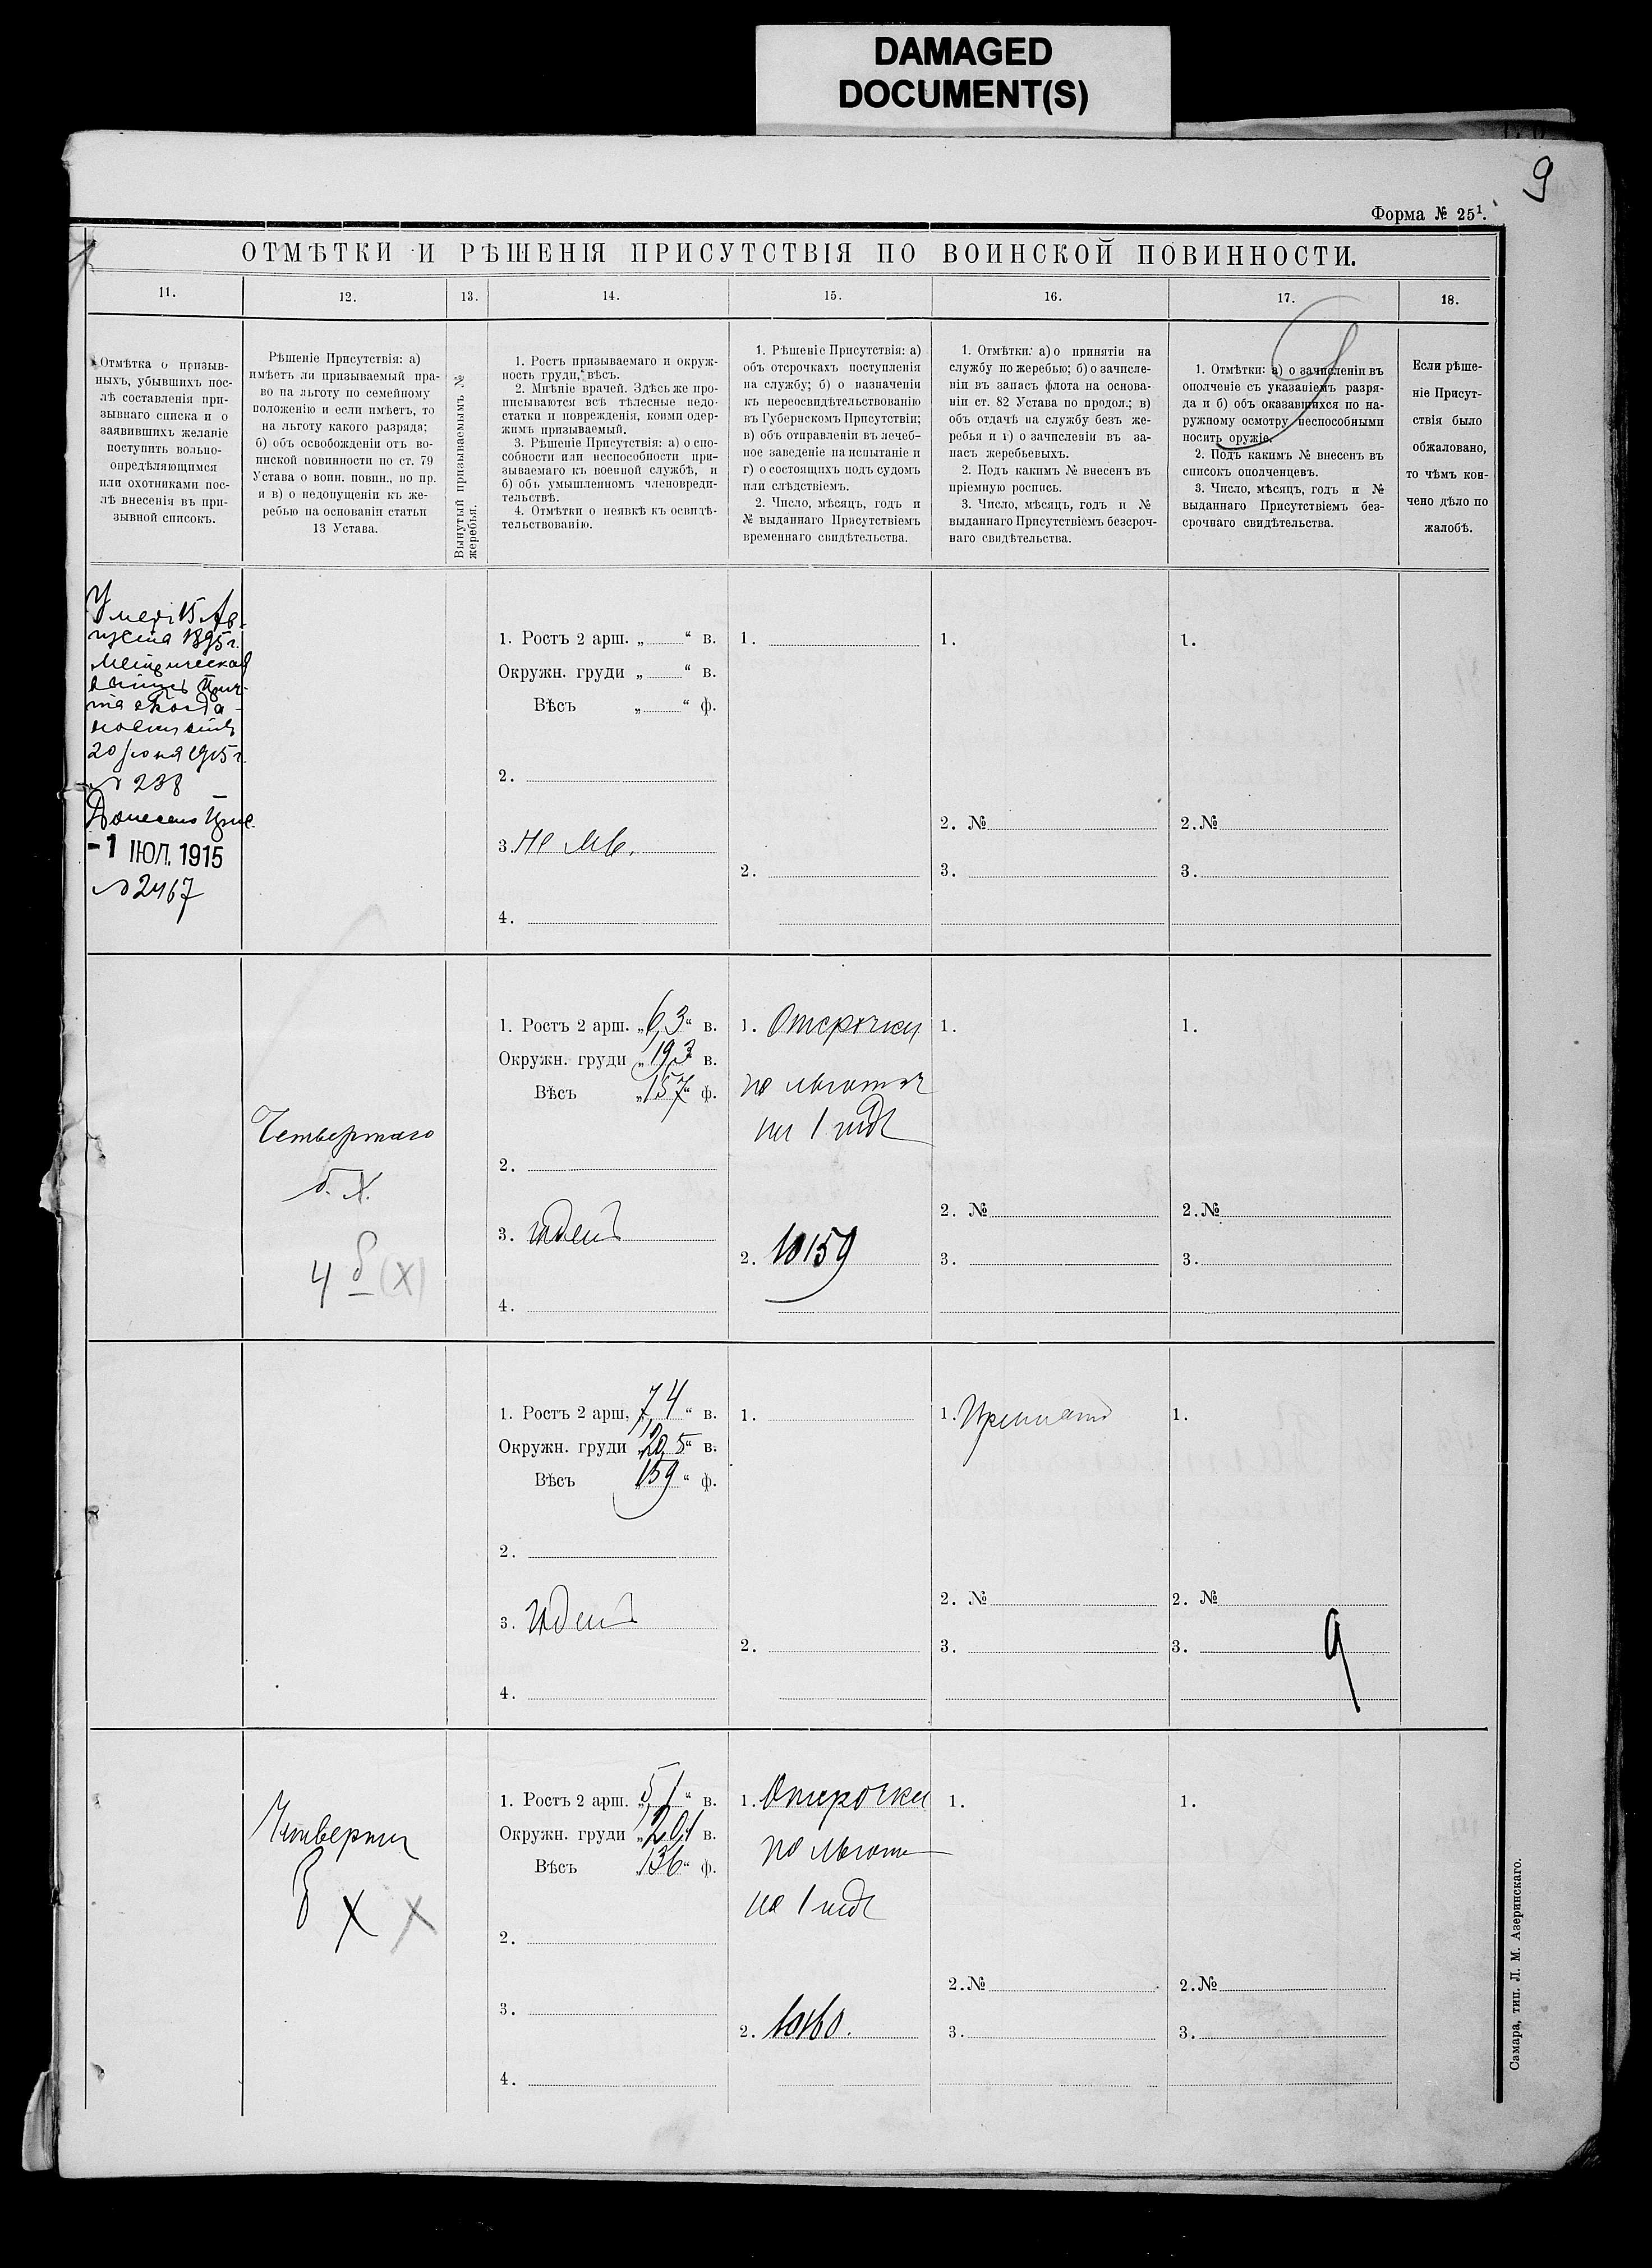 DAMAGED
DOCUMENT(S)
9
Форма № 25¹.
ОТМѢТКИ И РѢШЕНІЯ ПРИСУТСТВІЯ ПО ВОИНСКОЙ ПОВИННОСТИ.
11.
12.
13.
14.
15.
16.
17.
18.
Отмѣтка о призыв-
ныхъ, убывшихъ пос-
лѣ составленія при-
зывнаго списка и о
заявившихъ желаніе
поступить вольно-
опредѣляющимся
или охотниками пос-
лѣ внесенія въ при-
зывной списокъ.
Рѣшеніе Присутствія: а)
имѣетъ ли призываемый пра-
во на льготу по семейному
положенію и если имѣетъ, то
на льготу какого разряда;
б) объ освобожденіи отъ во-
инской повинности по ст. 79
Устава о воин. повин., по пр.
и в) о недопущеніи къ же-
ребью на основаніи статьи
13 Устава.
Вынутый призываемымъ №
жеребья.
1. Ростъ призываемаго и окруж-
ность груди, вѣсъ.
2. Мнѣніе врачей. Здѣсь же про-
писываются всѣ тѣлесные недо-
статки и поврежденія, коими одер-
жимъ призываемый.
3. Рѣшеніе Присутствія: а) о спо-
собности или неспособности при-
зываемаго къ военной службѣ, и
б) объ умышленномъ членовреди-
тельствѣ.
4. Отмѣтки о неявкѣ къ освидѣ-
тельствованію.
1. Рѣшеніе Присутствія: а)
объ отсрочкахъ поступленія
на службу; б) о назначеніи
къ переосвидѣтельствованію
въ Губернскомъ Присутствіи;
в) объ отправленіи въ лечеб-
ное заведеніе на испытаніе и
г) о состоящихъ подъ судомъ
или слѣдствіемъ.
2. Число, мѣсяцъ, годъ и
№ выданнаго Присутствіемъ
временнаго свидѣтельства.
1. Отмѣтки: а) о принятіи на
службу по жеребью; б) о зачисле-
ніи въ запасъ флота на основа-
ніи ст. 82 Устава по продол.; в)
объ отдачѣ на службу безъ же-
ребья и г) о зачисленіи въ за-
пасъ жеребьевыхъ.
2. Подъ какимъ № внесенъ въ
пріемную роспись.
3. Число, мѣсяцъ, годъ и №
выданнаго Присутствіемъ безсроч-
наго свидѣтельства.
1. Отмѣтки: а) о зачисленіи въ
ополченіе съ указаніемъ разря-
да и б) объ оказавшихся по на-
ружному осмотру неспособными
носить оружіе.
2. Подъ какимъ № внесенъ въ
списокъ ополченцевъ.
3. Число, мѣсяцъ, годъ и №
выданнаго Присутствіемъ без-
срочнаго свидѣтельства.
Если рѣше-
ніе Присут-
ствія было
обжаловано,
то чѣмъ кон-
чено дѣло по
жалобѣ.
Умеръ 15 Ав-
густа 1895 г.
Метрическая
20 Іюня 1915 г.
№ 238
Донесено
-1 ІЮЛ. 1915
№ 2467
1. Ростъ 2 арш. „ “ в.
Окружн. груди „ “ в.
Вѣсъ „ “ ф.
2.
3.
4.
1.
2.
1.
2. №
3.
1.
2. №
3.
Четвертаго
б. X.
4 б (X)
1. Ростъ 2 арш. „6,3“ в.
Окружн. груди „19,3 в.
Вѣсъ „157“ ф.
2.
3. Годенъ
4.
1. Отсрочки
по льготѣ
на 1 годъ
2. 10159
1.
2. №
3.
1.
2. №
3.
1. Ростъ 2 арш. 7,4 “ в.
Окружн. груди „20,5“ в.
Вѣсъ 159 “ ф.
2.
3. Годенъ
4.
1.
2.
1. Принятъ
2. №
3.
1.
2. №
3.
9
Четверти
б X X
1. Ростъ 2 арш. „5,1“ в.
Окружн. груди „20,1 в.
Вѣсъ „136“ ф.
2.
3.
4.
1. Отсрочки
по льготѣ
на 1 годъ
2. 10160.
1.
2. №
3.
1.
2. №
3.
Самара, тип. Л. М. Азеринскаго.